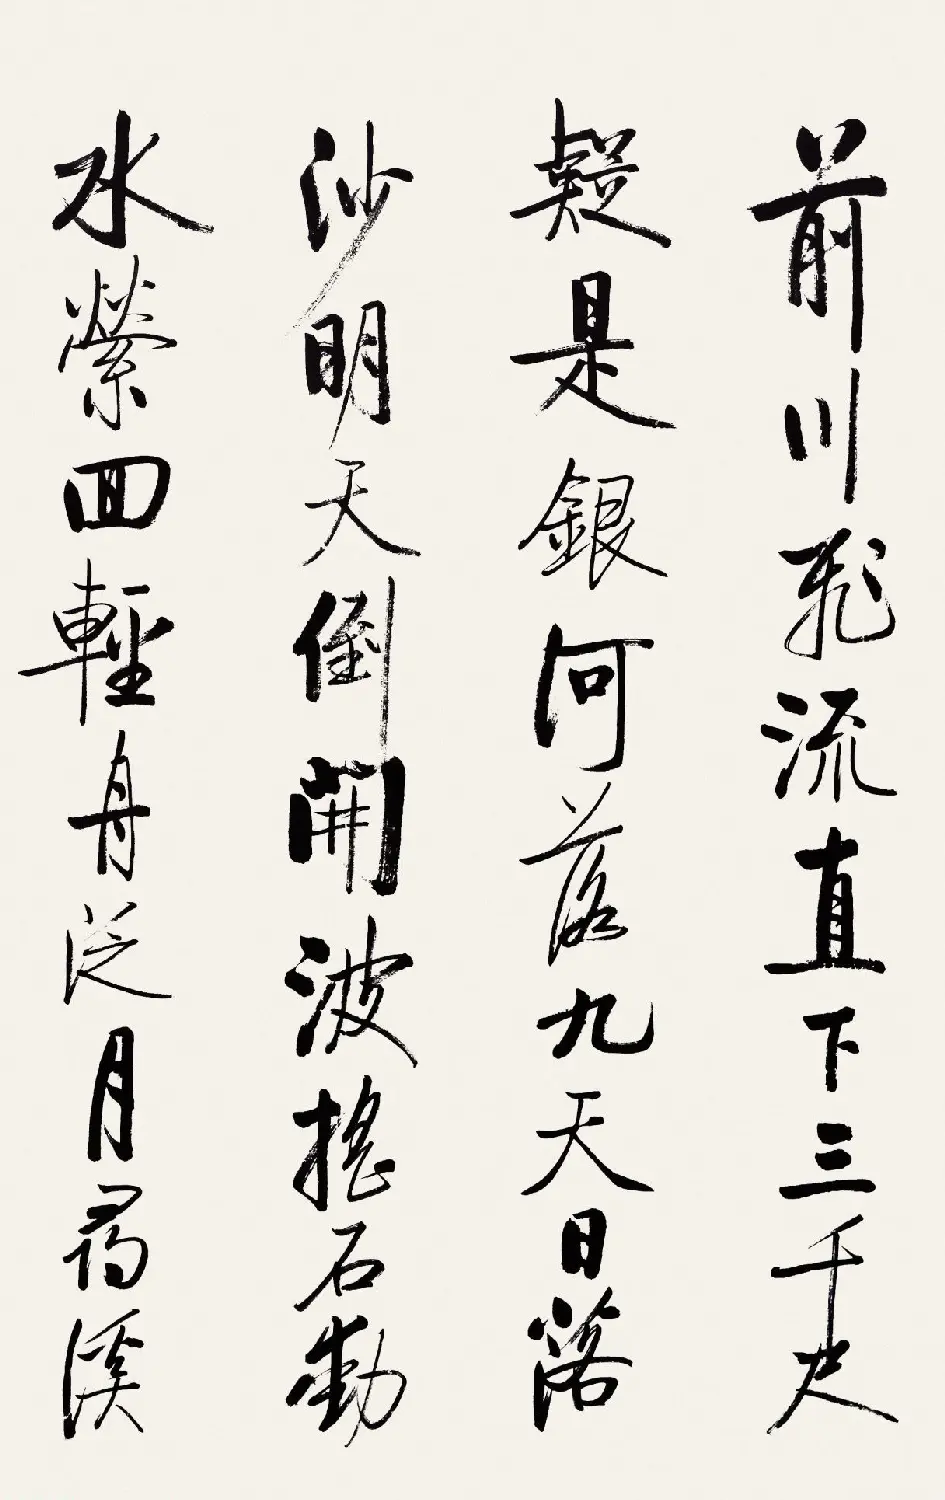 前川飛流直下三千尺
疑是銀河落九天日落
沙明天倒開波搖石動
水縈回輕舟泛月尋溪